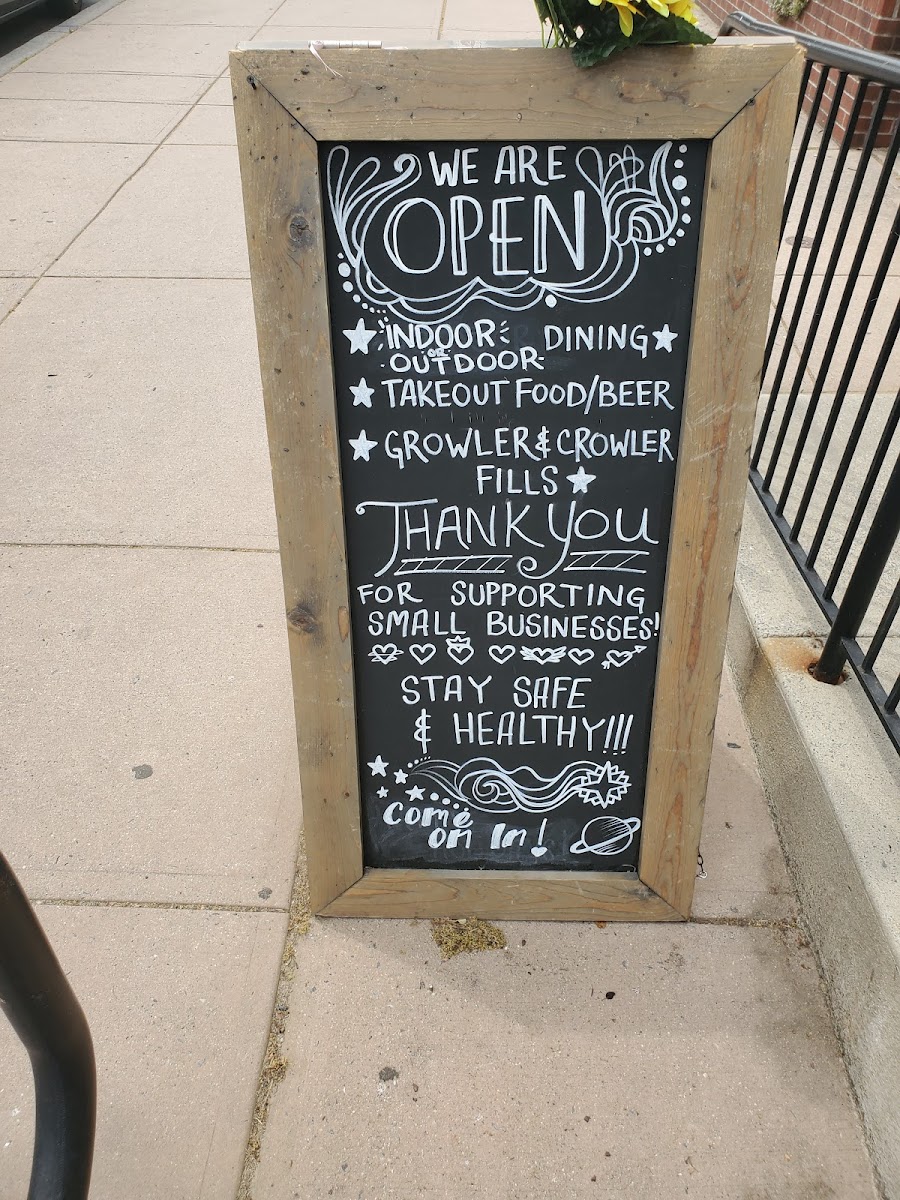 WE ARE
OPEN
INDOOR DINING
OR
OUTDOOR
TAKEOUT FOOD/BEER
GROWLER & CROWLER
FILLS
THANK YOU
FOR SUPPORTING
SMALL BUSINESSES!
STAY SAFE
& HEALTHY!!!
Come
on In!